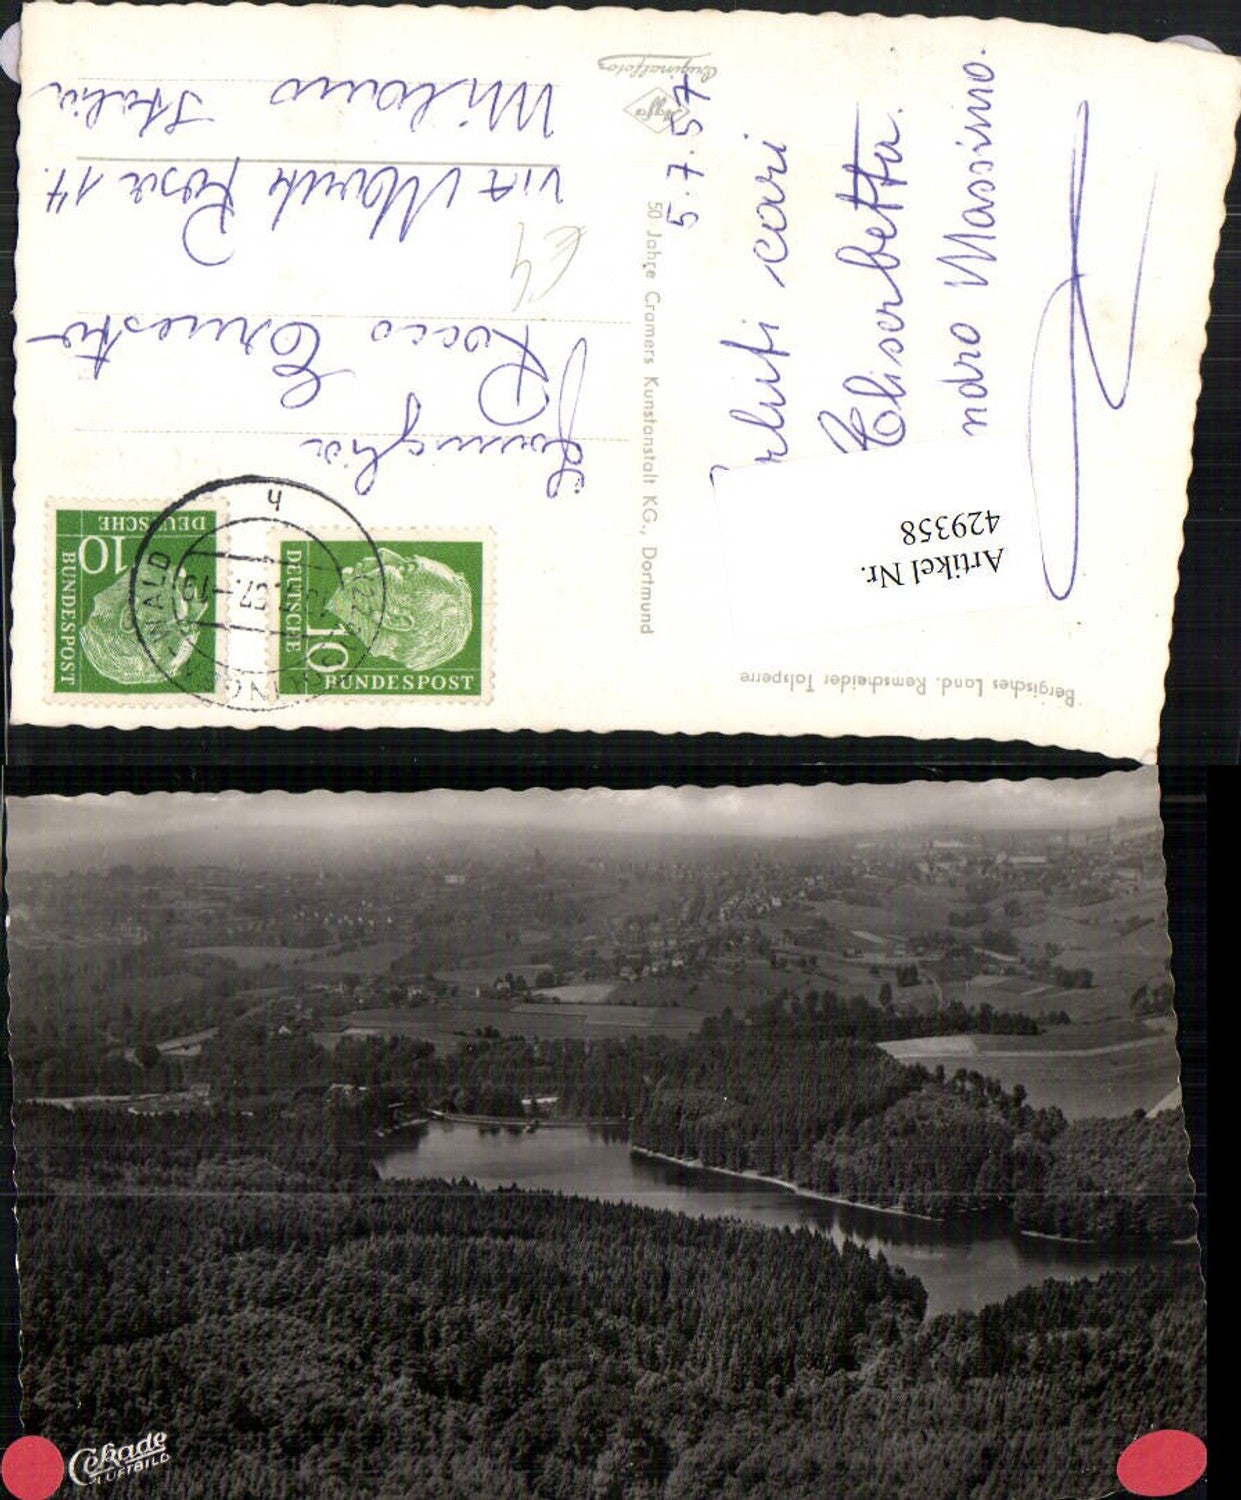 5.7.57
cari
Elisabetta.
Massimo.
Famiglia
Rocco Ernesto
Via Monte Rosa 14.
Milano Italia
Agfa
Originalfoto
50 Jahre Cramers Kunstanstalt KG., Dortmund
Bergisches Land. Remscheider Talsperre
Artikel Nr.
429358
DEUTSCHE
BUNDESPOST
10
DEUTSCHE
BUNDESPOST
10
WALD
h
Cekade
LUFTBILD